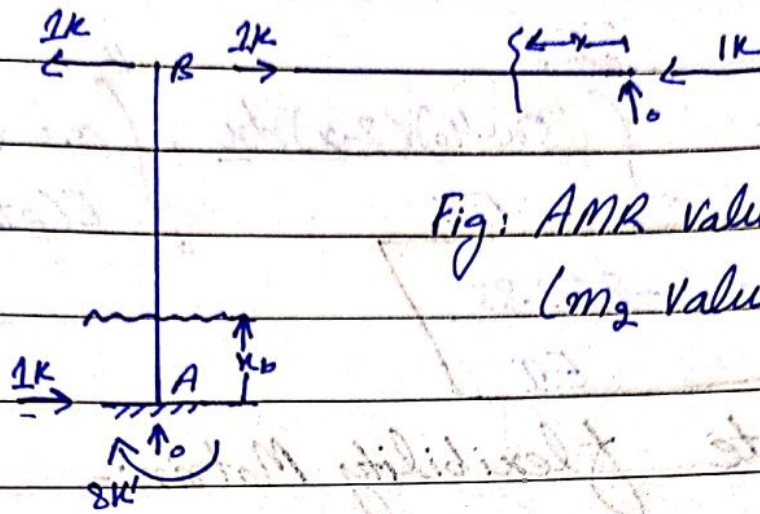 1K B 1K x 1K
0
Fig: AMR Valu
(m2 Valu
1K A x
0
8K'